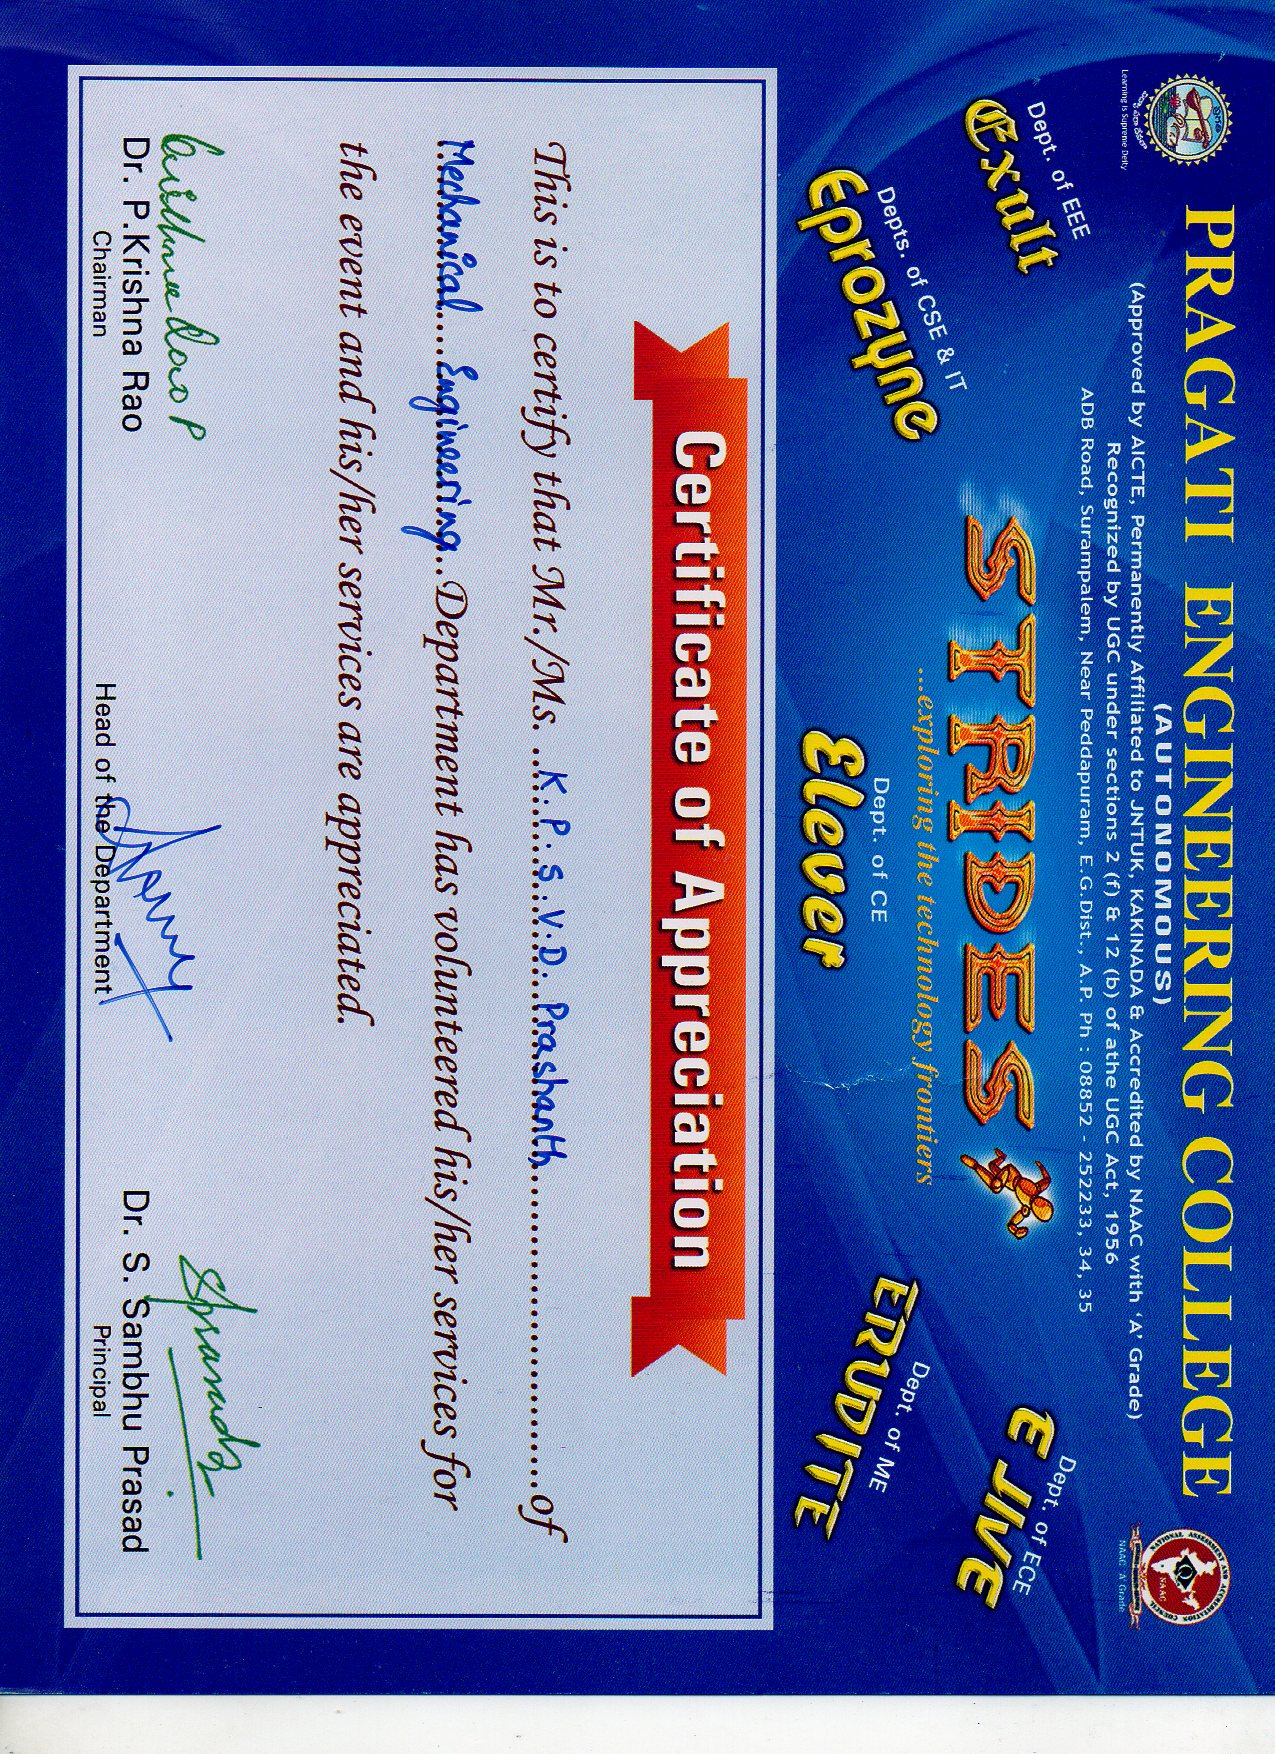 PRAGATI ENGINEERING COLLEGE
(AUTONOMOUS)
(Approved by AICTE, Permanently Affiliated to JNTUK, KAKINADA & Accredited by NAAC with ‘A’ Grade)
Recognized by UGC under sections 2 (f) & 12 (b) of athe UGC Act, 1956
ADB Road, Surampalem, Near Peddapuram, E.G.Dist., A.P. Ph : 08852 - 252233, 34, 35
Learning is Supreme Deity
NAAC
NAAC 'A' Grade
Dept. of EEE
Exult
Depts. of CSE & IT
Eprozyne
STRIDES
...exploring the technology frontiers
Dept. of CE
Elever
Dept. of ECE
E JIVE
Dept. of ME
ERUDITE
Certificate of Appreciation
This is to certify that Mr./Ms. K. P. S. V. D. Prashanth of
Mechanical Engineering Department has volunteered his/her services for
the event and his/her services are appreciated.
Krishna Rao P
Dr. P.Krishna Rao
Chairman
Head of the Department
Dr. S. Sambhu Prasad
Principal